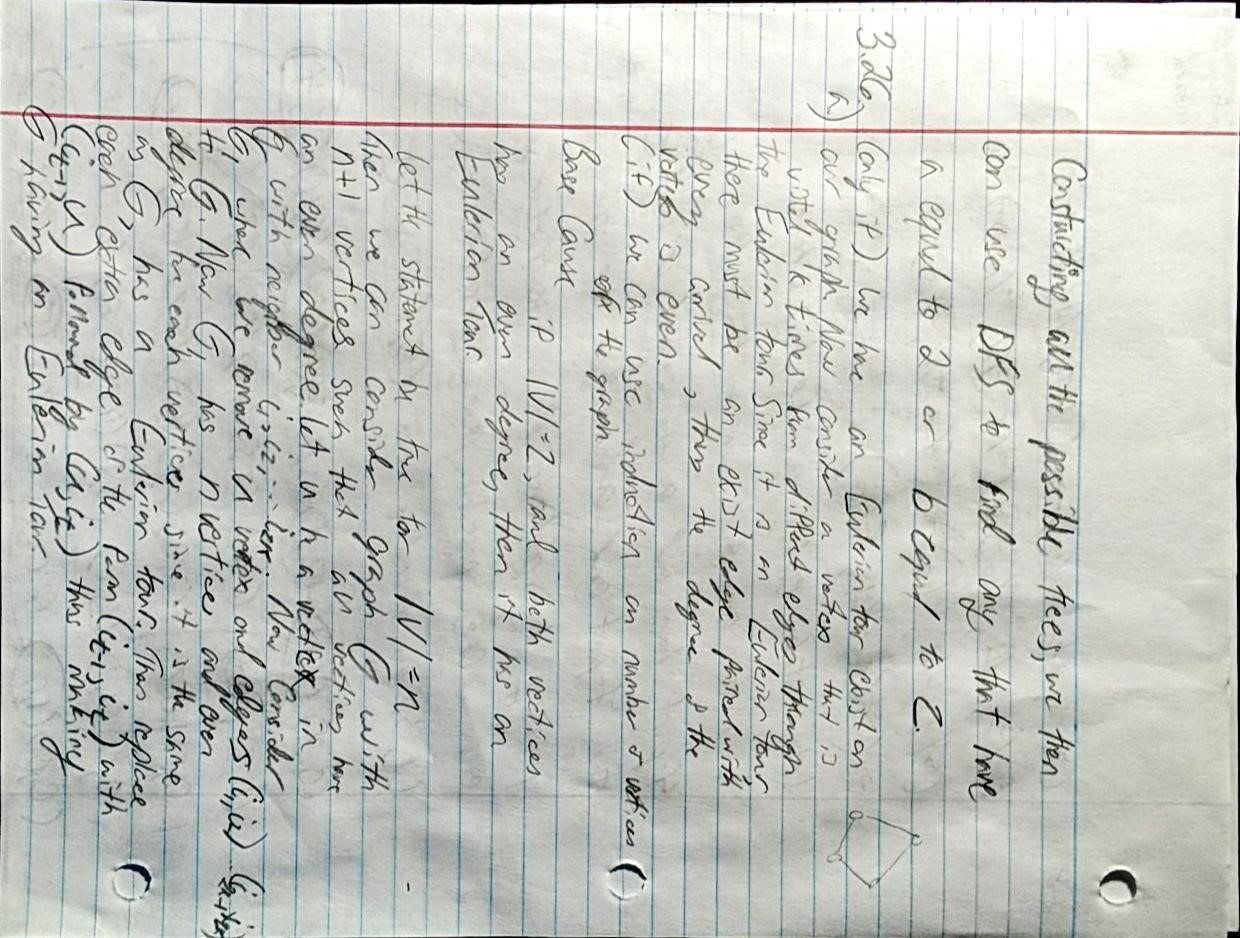 Constructing all the possible trees, we then
can use DFS to find any that have
a equal to 2 or b equal to 2.
3.26
a) (only if) We have an Eulerian tour exist on
our graph. Now consider a vertex that is
visited k times from different edges through
the Eulerian tour. Since it is an Eulerian tour
there must be an exist edge paired with
every arrival, thus the degree of the
vertex is even.
(if) We can use induction on number of vertices
of the graph
Base Cause
if |V|=2, and both vertices
has an even degree, then it has an
Eulerian Tour.
Let the statement be true for |V|=n
Then we can consider graph G with
n+1 vertices such that all vertices have
an even degree. Let u be a vertex in
G with neighbor i1, i2, ... Now Consider
G, where we remove u vertex and edges (i1,i2)
to G. Now G, has n vertices and even
degree for each vertices since it is the same
as G, has a Eulerian tour. Then replace
each edge of the form (it-1, it) with
(it-1, u) followed by (u, it) thus making
G having an Eulerian Tour.